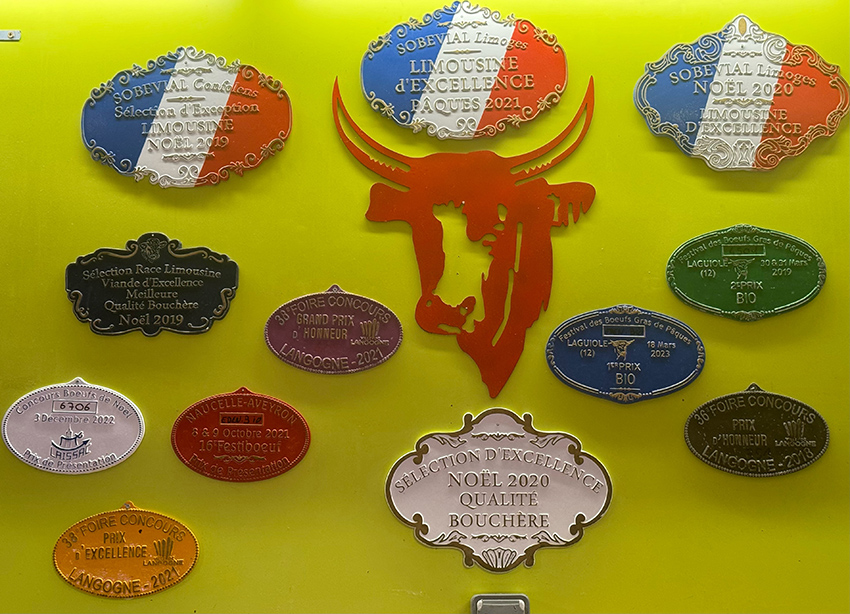 SOBEVIAL Confolens
Sélection d'Exception
LIMOUSINE
NOËL 2019
SOBEVIAL Limoges
LIMOUSINE
d'EXCELLENCE
PAQUES 2021
SOBEVIAL Limoges
NOËL 2020
LIMOUSINE
D'EXCELLENCE
Sélection Race Limousine
Viande d'Excellence
Meilleure
Qualité Bouchère
Noël 2019
38e FOIRE CONCOURS
GRAND PRIX
D'HONNEUR
LANGOGNE
LANGOGNE - 2021
Festival des Boeufs Gras de Pâques
LAGUIOLE
(12)
30 & 31 Mars
2019
2e PRIX
BIO
Festival des Boeufs Gras de Pâques
LAGUIOLE
(12)
18 Mars
2023
1er PRIX
BIO
Concours Boeufs de Noël
6706
3 Décembre 2022
LAISSAC
Prix de Présentation
NAUCELLE-AVEYRON
8 & 9 Octobre 2021
16e Festiboeuf
Prix de Présentation
36e FOIRE CONCOURS
PRIX
D'HONNEUR
LANGOGNE
LANGOGNE - 2018
SÉLECTION D'EXCELLENCE
NOËL 2020
QUALITÉ
BOUCHÈRE
38e FOIRE CONCOURS
PRIX
d'EXCELLENCE
LANGOGNE
LANGOGNE - 2021